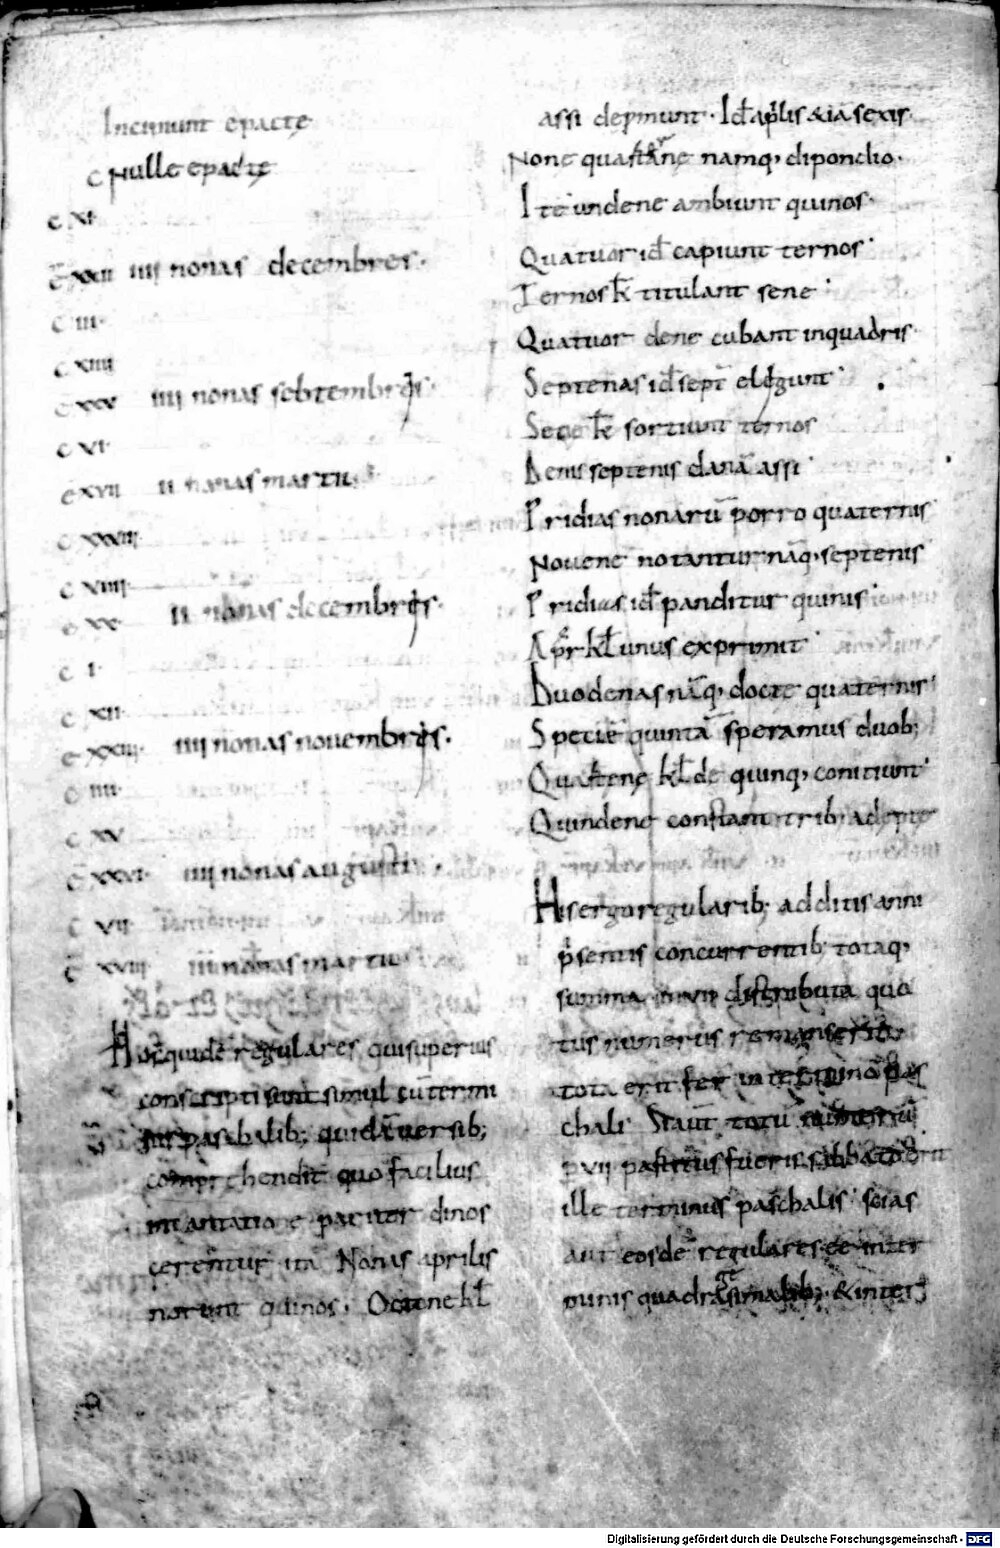 Incipiunt epacte
C Nulle epacte
C XI·
C XXII IIII nonas decembres·
C III·
C XIIII
C XXX IIII nonas sebtembres·
C VI·
C XVII II nonas martii
C XXVIII·
C VIIII·
C XX II nonas decembres·
C I·
C XII·
C XXIII· IIII nonas novembres·
C IIII·
C XV
C XXVI· IIII nonas augusti·
C VII·
C XVIII III nonas martii
regulares qui superius
conscripti sunt simul cū termi
nis paschalib; quidā versib;
comprehendit quo facilius
pariter dinos
cerentur ita Nonas aprilis
norunt quinos· Octene kł
assi depmunt· Id apłis &iā sexis·
None namq; dipondio·
Ite undene ambiunt quinos·
Quatuor id capiunt ternos·
Ternos kł titulant sene·
Quatuor dene cubant in quadris·
Septenas id sept elegunt·
Sene kł sortiunt ternos
Denis septenis donā assi·
Pridias nonarū porro quaternis
Novene notantur nāq; septenis
Pridias id panditur quinis·
Apr kł unus exprimit·
Duodenas nāq; docte quaternis·
Specie quintā speramus duob;
kł de quinq; coniciunt·
Quindene constant trib; adepte
His ergo regularib; additis anni
p̄sentis concurrentib; totaq;
summa in VII distributa quo
tus numerus remanserit
tota erit fer in termino pas
chali· totū
P VII
ille terminus paschalis· scias
aut eosdē regulares ee inter
&inter
Digitalisierung gefördert durch die Deutsche Forschungsgemeinschaft · DFG